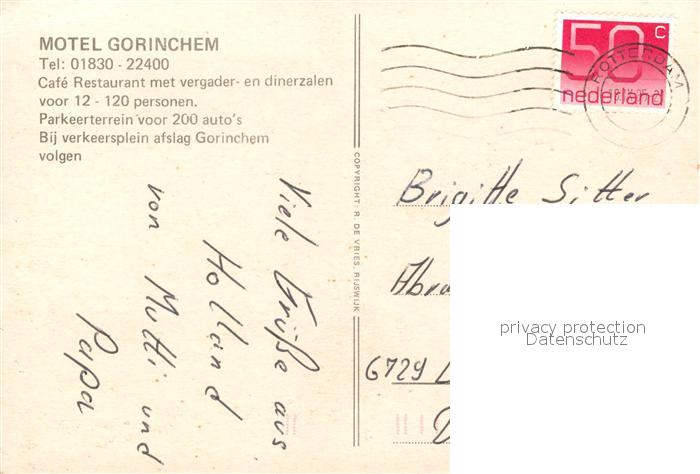 MOTEL GORINCHEM
Tel: 01830 - 22400
Café Restaurant met vergader- en dinerzalen
voor 12 - 120 personen.
Parkeerterrein voor 200 auto's
Bij verkeersplein afslag Gorinchem
volgen
Viele Grüße aus
Holland
von Mutti und
Papa
COPYRIGHT: R. DE VRIES, RIJSWIJK
50 c
nederland
ROTTERDAM
Brigitte Sitter
6729
privacy protection
Datenschutz